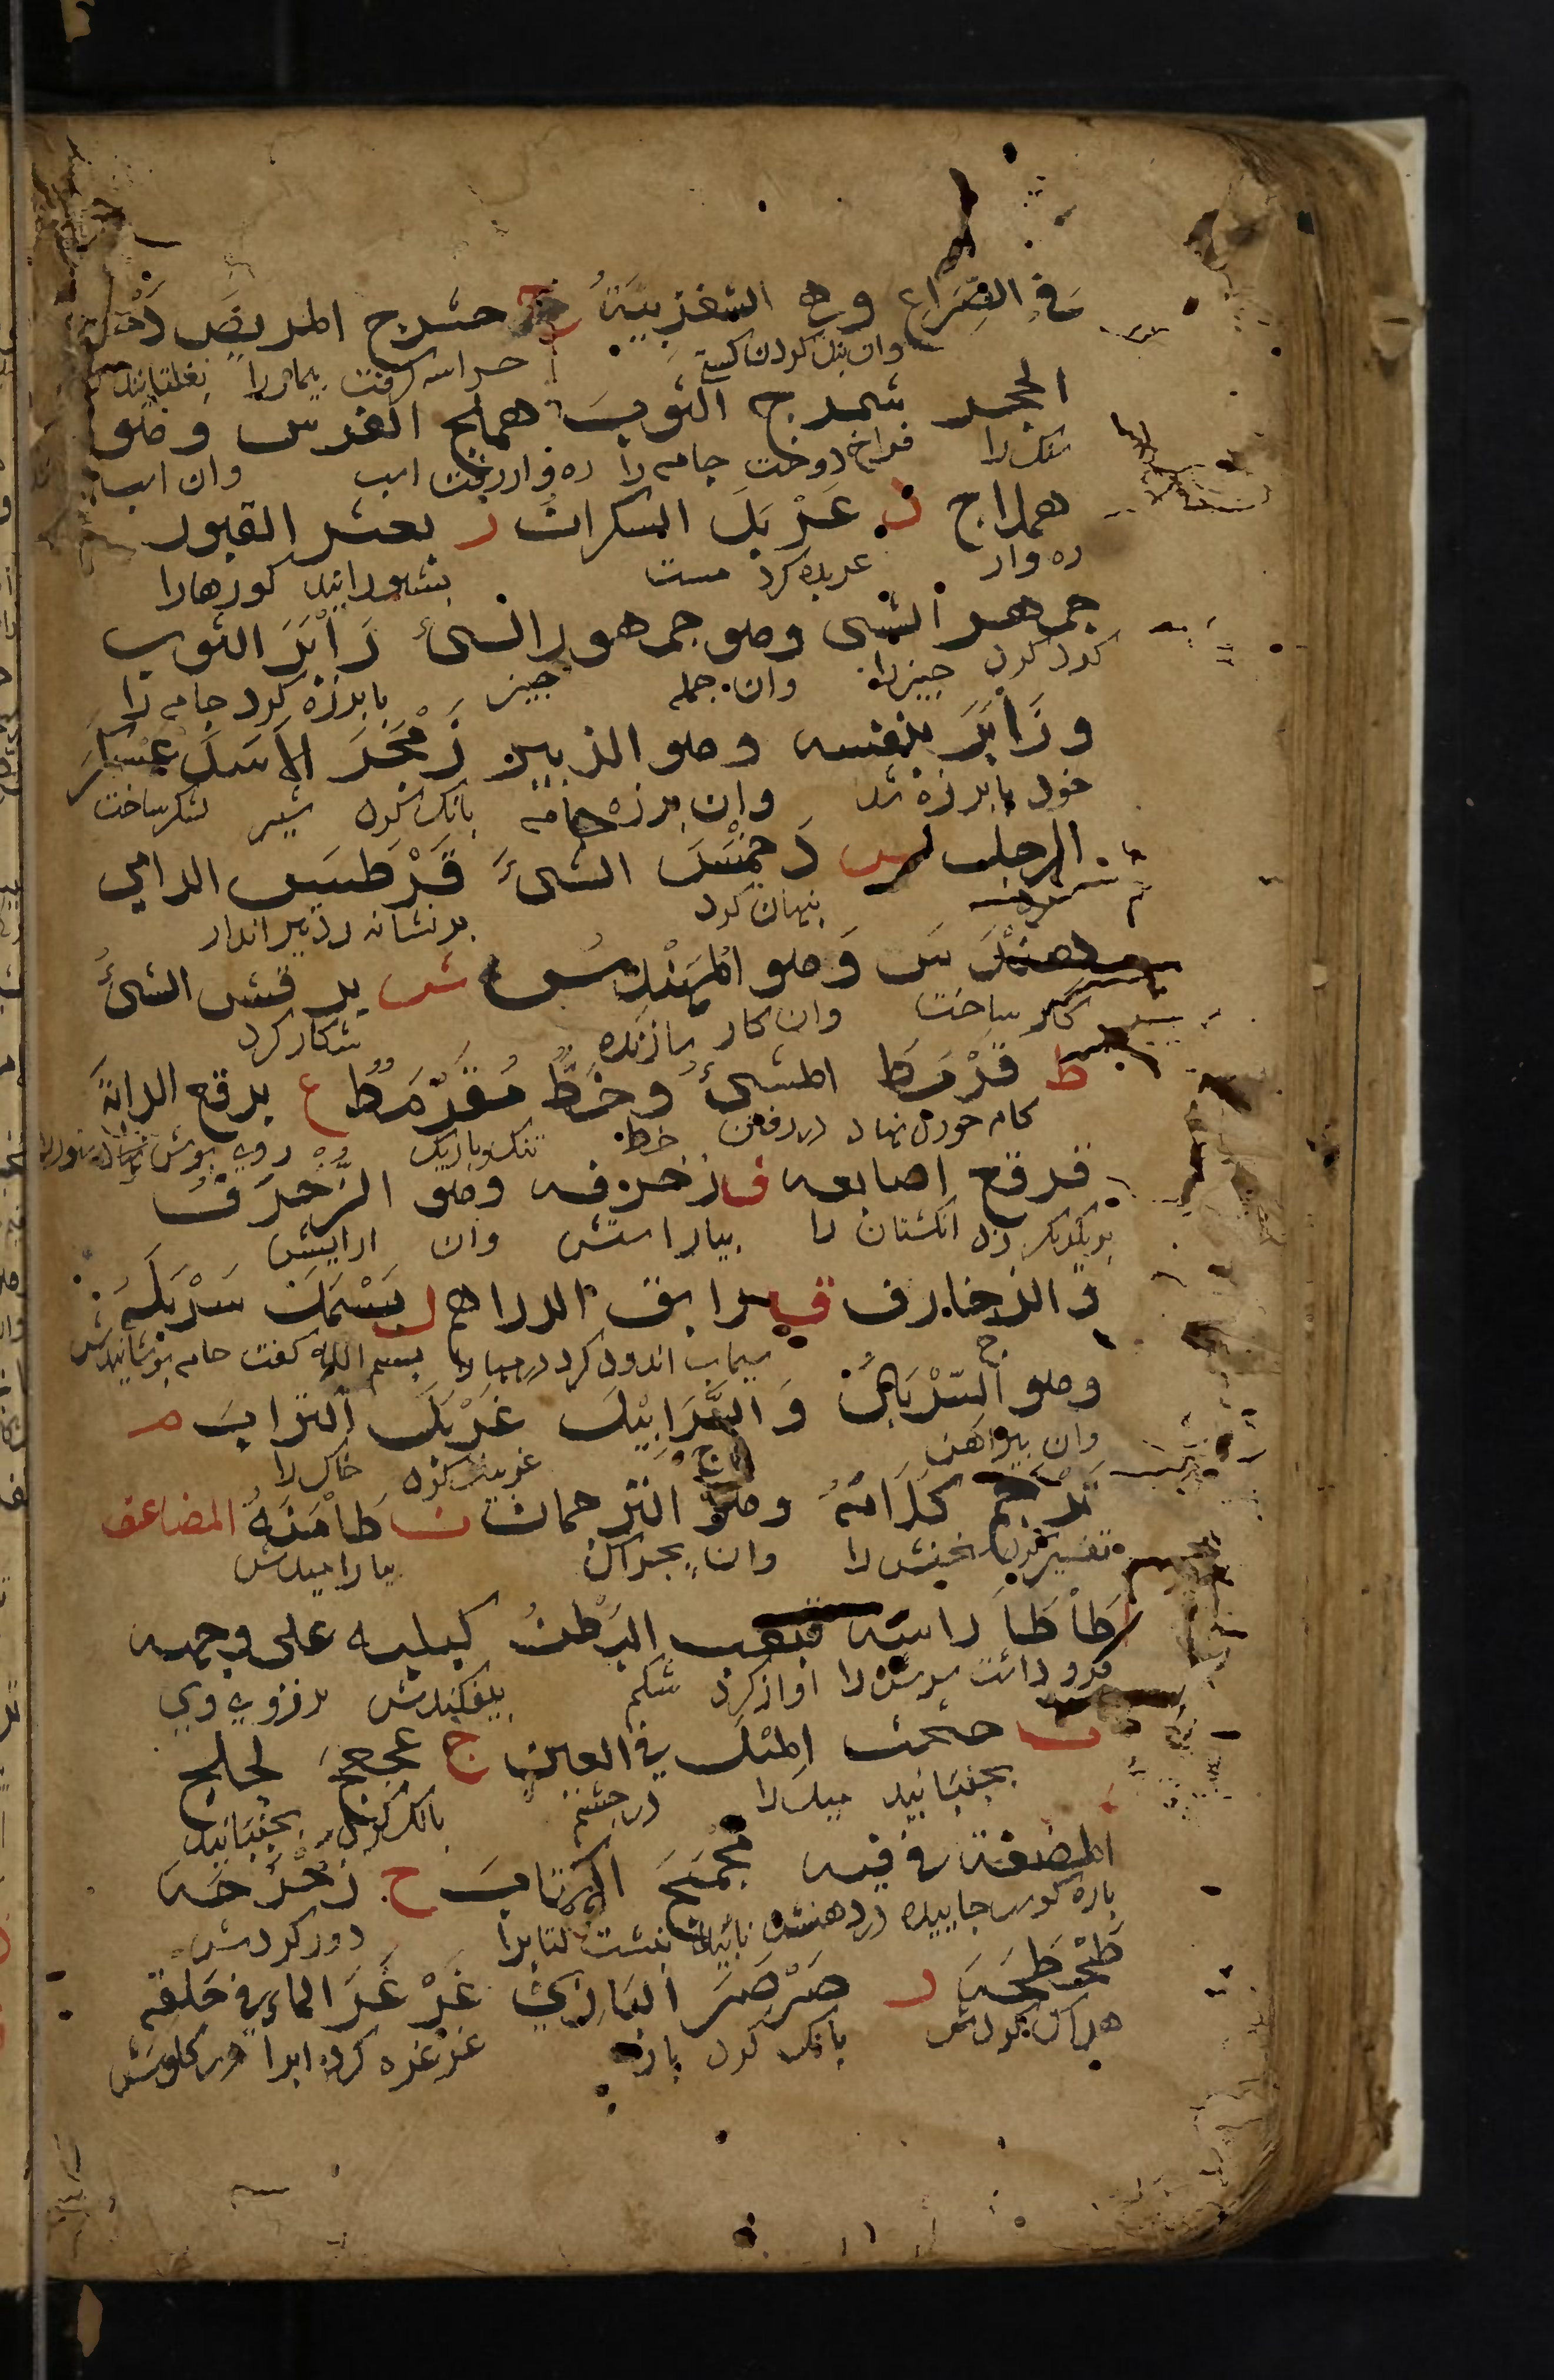 في الصِّرَاعِ وهى الشغزبيّةُ ج حشرج المريض دَحرج
وان بند كردن كشتى حراسه گرفت بيمار را بغلتانيد
الحجر شمرج الثوبَ هملج الفرس وهو
سنگ را فراخ دوخت جامه را ره وار رفت اسب وان اسب
هملاج د عَرْبَدَ السكران ر بعثر القبور
ره وار عربده كرد مست بشورانيد كورها را
جمهر الشى وهو جمهور الشئ زَأْبَرَ الثوب
كرد كرد چيز را وان جمله چيز با برزه كرد جامه را
وزَأْبَرَ بنفسه وهو الزئبر زَمْجَرَ الاسَدُ عسكر
خود با برزه شد وان برزه جامه بانگ كرد شير لشكر ساخت
الرجل س دَخمَسَ الشئَ قَرْطسَ الرامي
مرد پنهان كرد بر نشانه زد تير انداز
هندَسَ وَهو المهَنْدِسُ ش برقش الشئَ
كار ساخت وان كار سازنده شكار كرد
ط قَرْمَطَ المشىَ وخَطٌّ مُقَرْمَطٌ ع برقع الدابةَ
كام خورد نهاد در رفتن خط تنگ و باريك روى پوش ستور را
فرقع اصابعه ف زخرفه وهو الزُّخرُف
انگشتان را بياراستش وان ارايش
و الزخارف ق زابق الدراهم ل بَسْمَلَ سَرْبَلَهُ
سيماب اندود كرد درمها را بسم الله گفت جامه پوشانيدش
وهو السّرْبَالُ وَ السَّرَابِيْلُ غَرْبَلَ الترابَ م
وان پيراهن غربيل كرد خاك را
تَرْجَمَ كَلَامَهُ وهو الترجمان ن طَأْمَنَهُ المضاعف
تفسير كرد سخنش را وان بيارامیدش
طَأْطَأَ راسَه قبقب البَطْنُ كبكبه على وجهه
فرو داشت سرش را اواز كرد شكم بيفكندش بر روى وى
ث حثحث الميْلَ في العين ج عجعج لجلج
بجنبانيد ميل را در چشم بانگ كرد بجنبانيد
المضغة في فيه مجمج الكتابَ ح زَحْزَحَه
پاره گوشت خاييده در دهنش نبشت كتاب را دور كردش
طَحْطَحَه ر صَرْصَرَ البَازِيُّ غَرْغَرَ الماءَ في حَلقه
هلاك كردش بانگ كرد باز غرغره كرد ابرا در گلوش